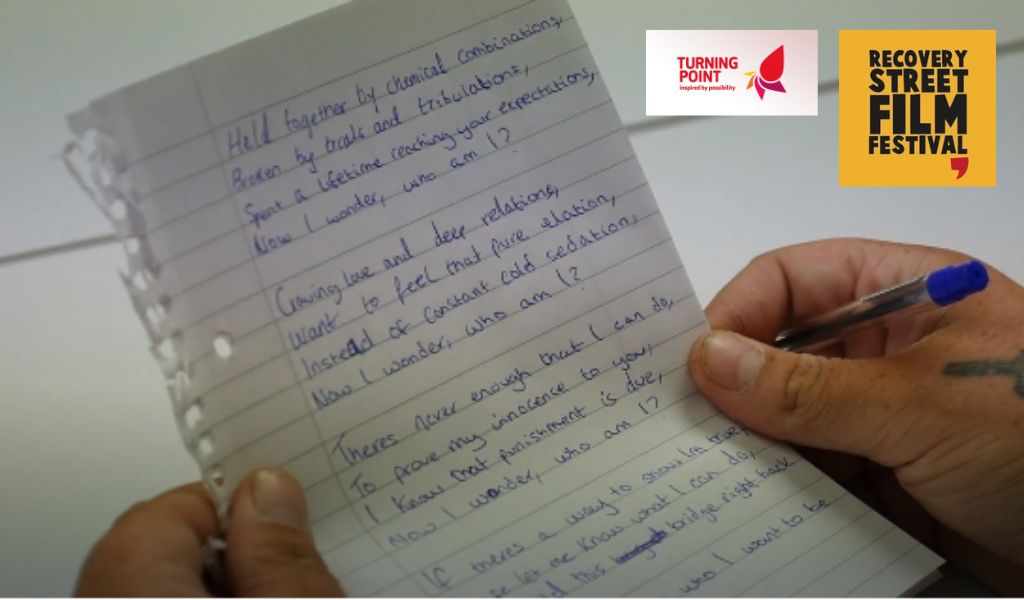 Held together by chemical combinations,
Broken by trials and tribulations,
Spent a lifetime reaching your expectations,
Now I wonder, who am I?
Craving love and deep relations,
Want to feel that pure elation,
Instead of constant cold sedation,
Now I wonder, who am I?
Theres never enough that I can do,
To prove my innocence to you,
I know that punishment is due,
Now I wonder, who am I?
If theres a way to show Im true,
se let me know what I can do,
d this bridge right back
who I want to be
TURNING
POINT
inspired by possibility
RECOVERY
STREET
FILM
FESTIVAL